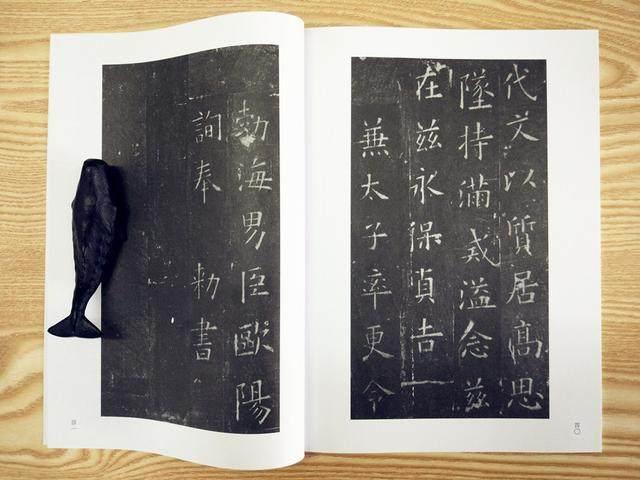 代文以質居高思
墜持滿戒溢念兹
在兹永保貞吉
兼太子率更令
勃海男臣歐陽
詢奉 勑書
四〇
四一